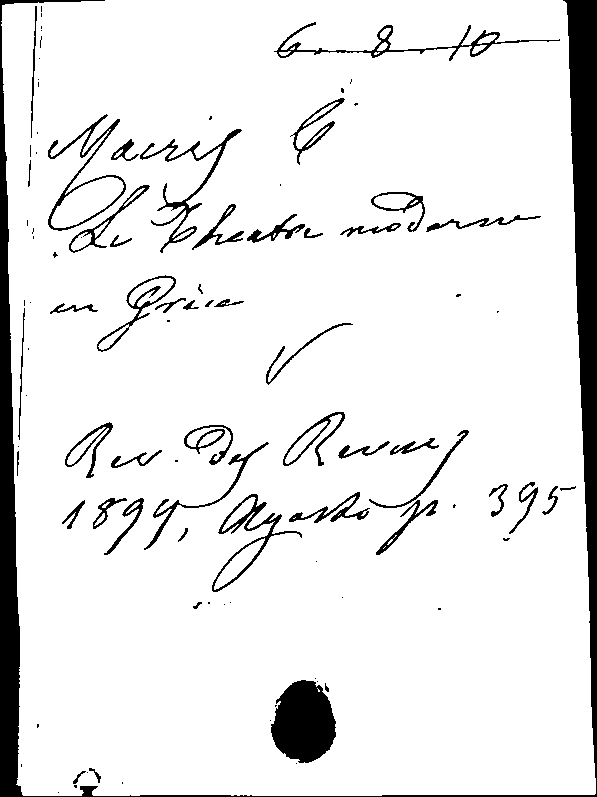 6. 8. 10
Macris C
Le Théatre moderne
en Grèce
Rev. des Revues
1899, Agosto p. 395